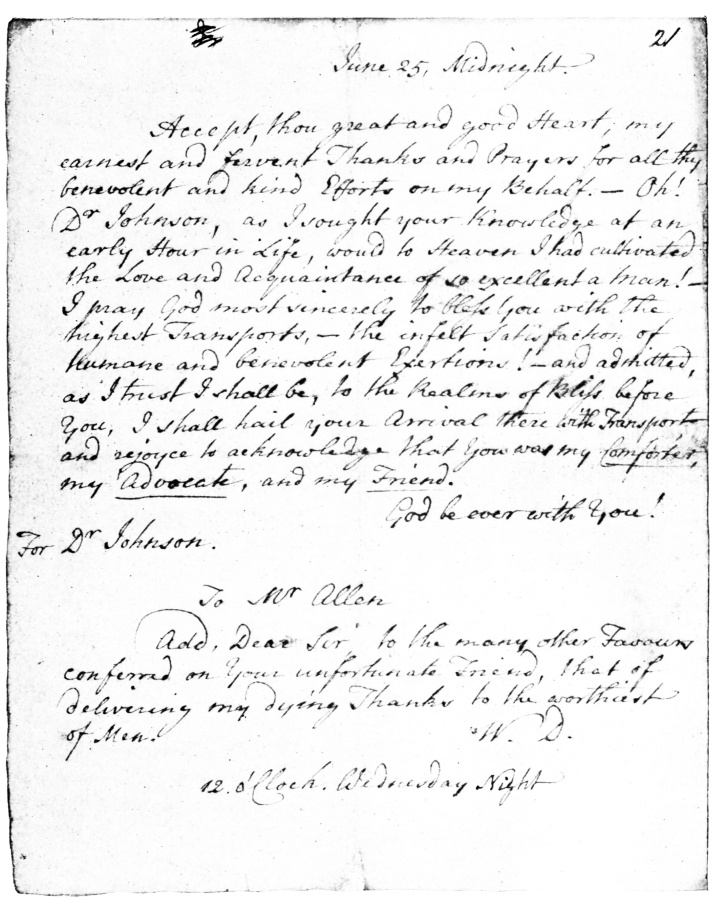 21
June 25, Midnight.
Accept, thou great and good Heart, my
earnest and fervent Thanks and Prayers for all thy
benevolent and kind Efforts on my Behalf. — Oh!
Dr Johnson, as I sought your Knowledge at an
early Hour in Life, would to Heaven I had cultivated
the Love and Acquaintance of so excellent a Man! —
I pray God most sincerely to bless You with the
highest Transports, — the infelt Satisfaction of
humane and benevolent Exertions! — and admitted,
as I trust I shall be, to the Realms of Bliss before
You, I shall hail your Arrival there with Transport
and rejoyce to acknowledge that You was my Comforter,
my Advocate, and my Friend.
God be ever with You!
For Dr Johnson.
To Mr Allen
Add, Dear Sir, to the many other Favours
conferred on Your unfortunate Friend, that of
delivering my dying Thanks to the worthiest
of Men.
W. D.
12. o'Clock. Wednesday Night